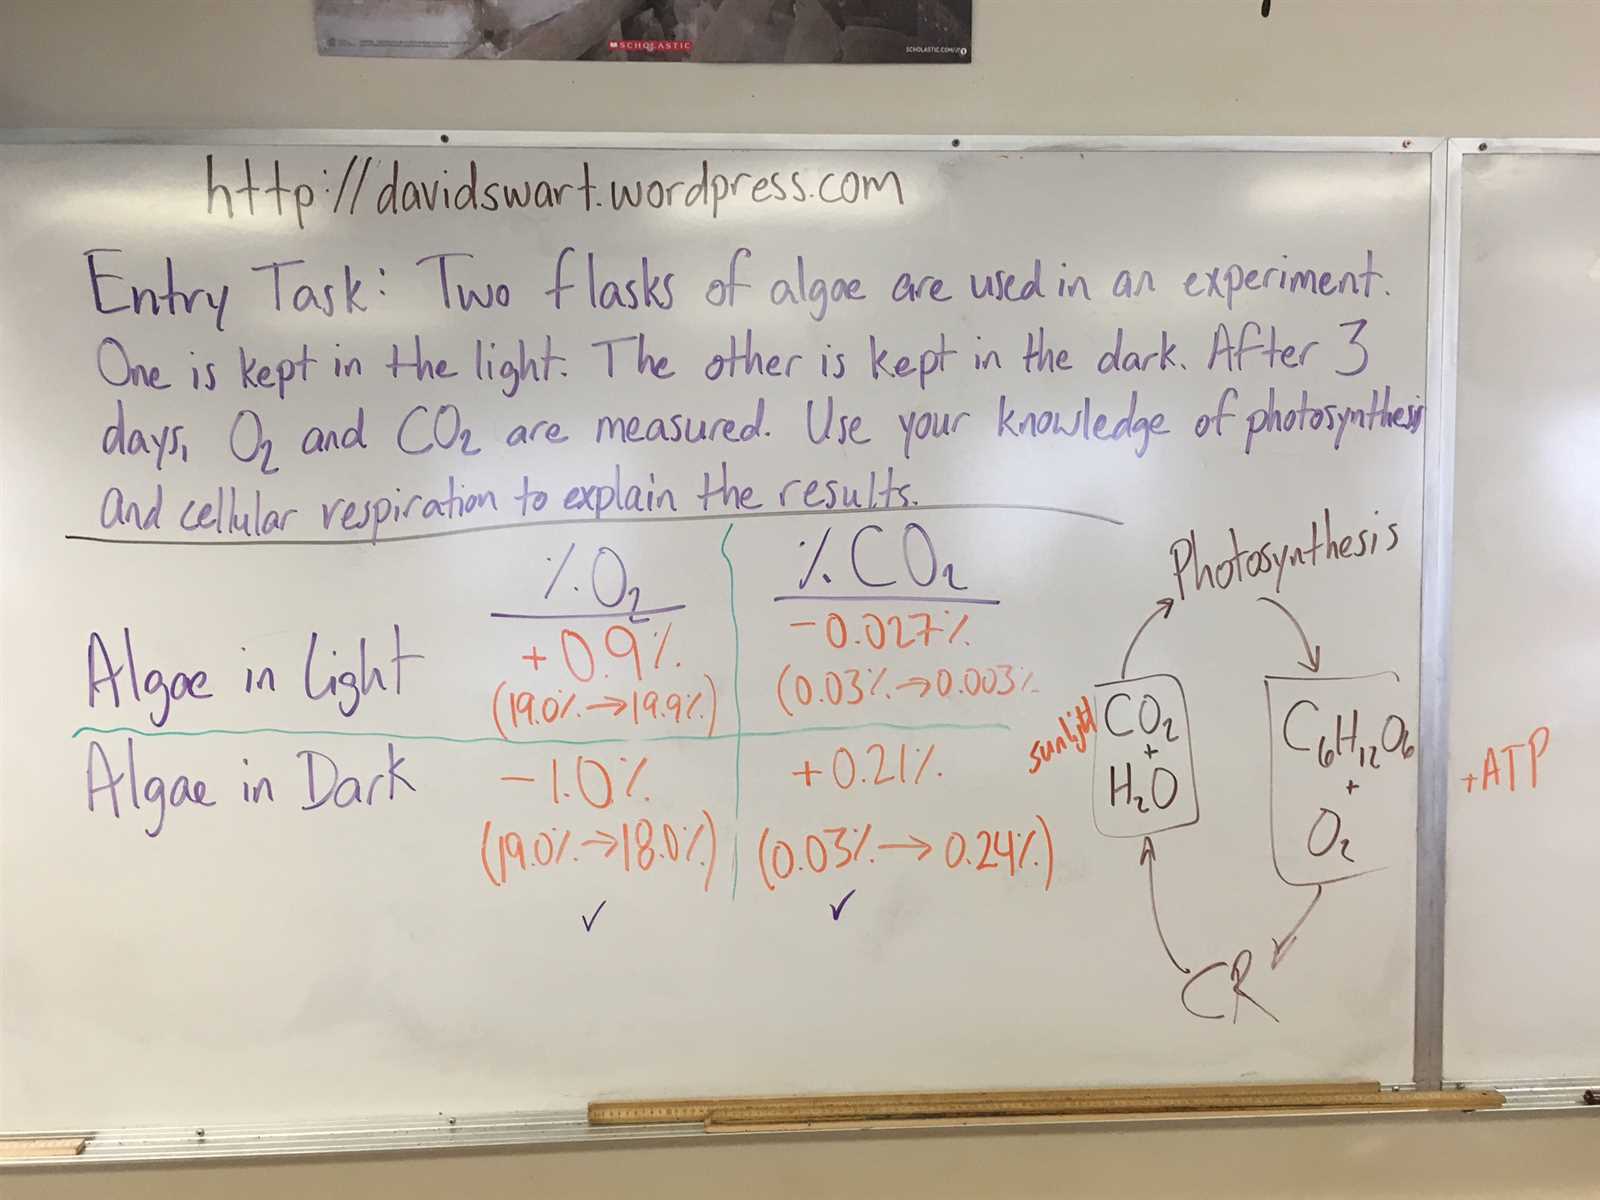 SCHOLASTIC
http://davidswart.wordpress.com
Entry Task: Two flasks of algae are used in an experiment.
One is kept in the light. The other is kept in the dark. After 3
days, O₂ and CO₂ are measured. Use your knowledge of photosynthesis
and cellular respiration to explain the results.
% O₂
% CO₂
Algae in Light
+0.9%
(19.0% → 19.9%)
-0.027%
(0.03% → 0.003%
Algae in Dark
-1.0%
(19.0% → 18.0%)
✓
+0.21%
(0.03% → 0.24%)
✓
Photosynthesis
sunlight
CO₂
+
H₂O
C₆H₁₂O₆
+
O₂
+ATP
CR